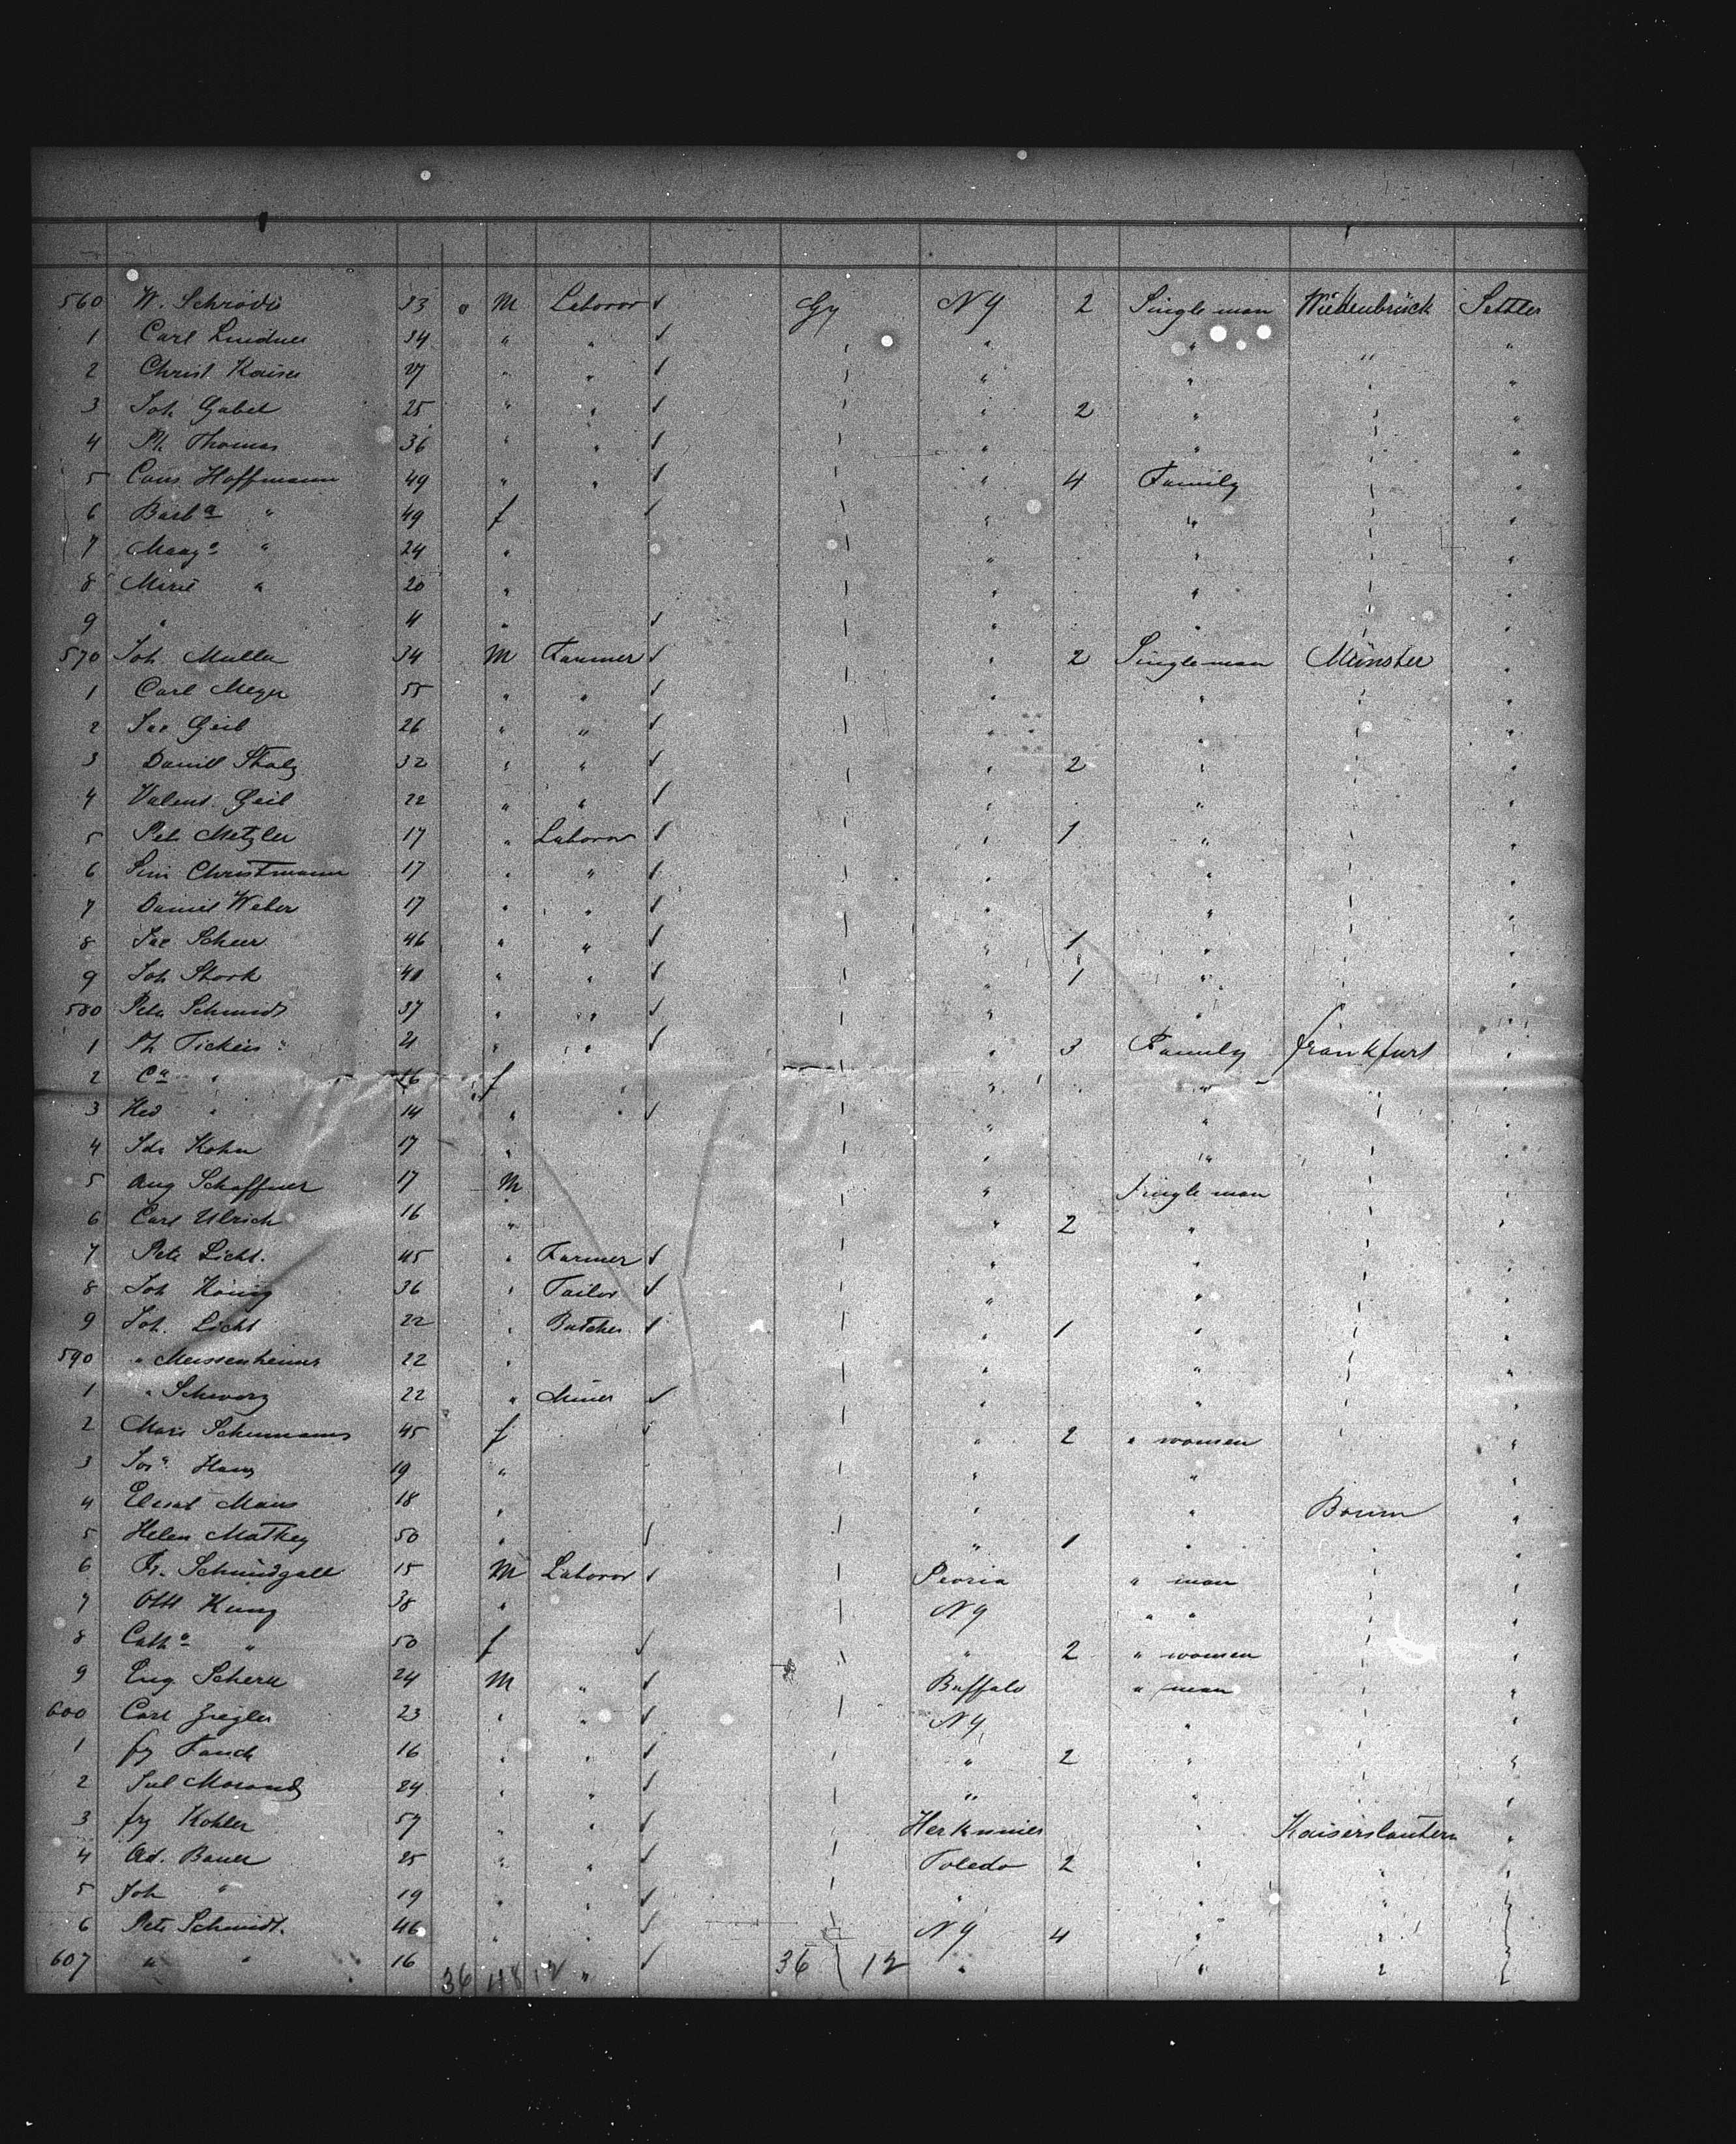 560 W. Schröder 33 " M Laborer √ Gy N Y 2 Single man Wiedenbrück Settler
1 Carl Lindner 34 " " √ " " "
2 Christ. Kaiser 27 " " √ " " "
3 Joh Gabel 25 " " √ " 2 " "
4 Ph. Thomas 36 " " √ " " "
5 Hoffmann 49 " " √ " 4 Family "
6 Barb a " 49 f √ " " "
7 " 24 " " " "
8 Marie " 20 " " " "
9 " " √ " " "
570 Joh Muller 34 M Farmer √ " 2 Single man Münster "
1 Carl Meyer 55 " " √ " " "
2 Jac Geib 26 " " √ " " "
3 Daniel 32 " " √ " 2 " "
4 Valent. Geib 22 " " √ " " "
5 Pet. Metzler 17 " Laborer √ " 1 " "
6 Christmann 17 " " √ " " "
7 Daniel Weber 17 " " √ " " "
8 Jac Scheer 46 " " √ " 1 " "
9 Joh Stork " " √ " 1 " "
580 Peter Schmidt 37 " " √ " " "
1 Ph 21 " " √ " 3 Family Frankfurt "
2 Ca " f " " "
3 " 14 " √ " " "
4 Kohn 17 " " " "
5 Aug Schaffner 17 M " Single man "
6 Carl Ulrich 16 " " 2 " "
7 Pete Licht. 45 " Farmer √ " " "
8 Joh König 36 " Tailor √ " " "
9 Joh. Licht 22 " Butcher √ " 1 " "
590 " 22 " " " "
1 " Schwarz 22 " Miner √ " " "
2 Marie 45 f √ " 2 " women "
3 19 " " " "
4 18 " " "
5 Helen Mathey 50 " √ " 1 " "
6 Schmidgall 15 M Laborer √ Peoria " man "
7 38 " N Y " " "
8 Cath a " 50 f √ " 2 " women "
9 Eug. 24 M " √ Buffalo " man "
600 Carl Ziegler 23 " " √ N Y " "
1 16 " " √ " 2 " "
2 Jul 24 " " √ " " "
3 Kohler 57 " " √ Kaiserslautern "
4 Ad. Bauer 25 " " √ Toledo 2 " " "
5 Joh " 19 " " √ " " "
6 Pete Schmidt. 46 " " √ N Y 4 " "
607 " " 16 " √ 36 12 " "
36 48 12